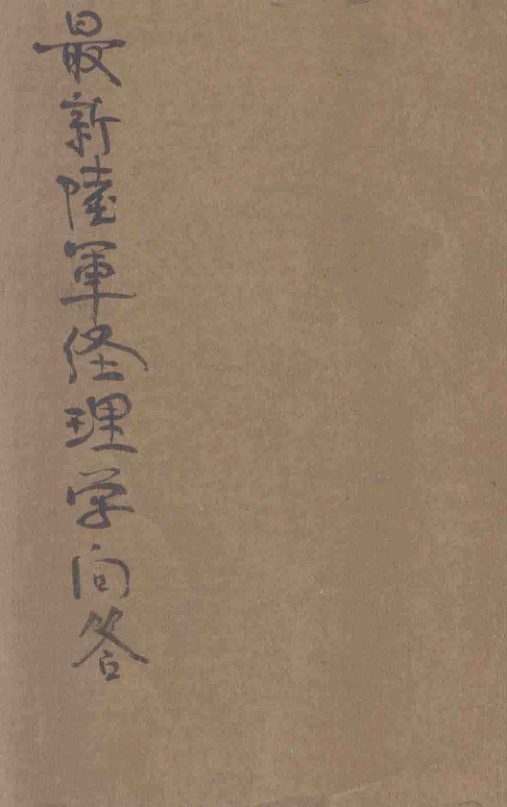 最新陸軍経理学問答